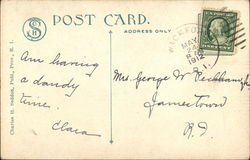 POST CARD.
ADDRESS ONLY
WICKFORD
MAY
1912
R.I.
Am having
a dandy
time.
Clara
Mrs. George W. Peckham Jr.
Jamestown
R.I.
Charles H. Seddon, Publ., Prov., R. I.